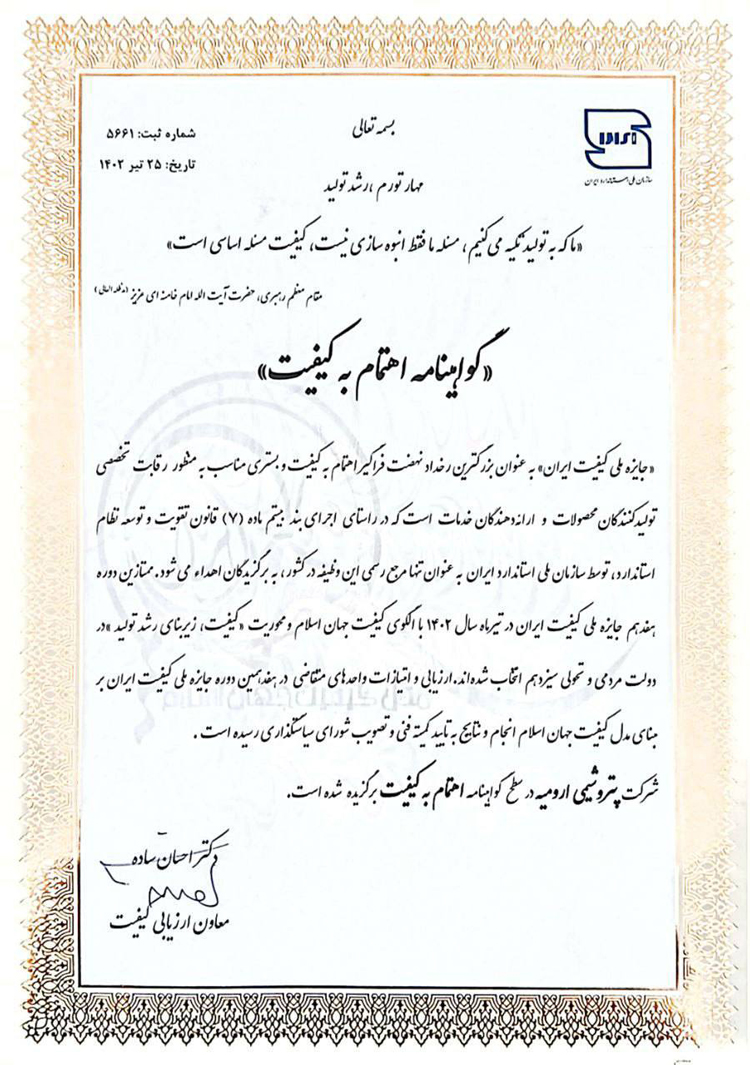 بسمه تعالی
شماره ثبت: ۵۶۶۱
تاریخ: ۲۵ تیر ۱۴۰۲
سازمان ملی استاندارد ایران
مهار تورم ، رشد تولید
«ما که به تولید تکیه می‌کنیم ، مسئله ما فقط انبوه سازی نیست، کیفیت مسئله اساسی است»
مقام معظم رهبری، حضرت آیت الله امام خامنه ای عزیز (مدظله العالی)
«گواهینامه اهتمام به کیفیت»
«جایزه ملی کیفیت ایران» به عنوان بزرگترین رخداد نهضت فراگیر اهتمام به کیفیت و بستری مناسب به منظور رقابت تخصصی
تولیدکنندگان محصولات و ارائه‌دهندگان خدمات است که در راستای اجرای بند بیستم ماده (۷) قانون تقویت و توسعه نظام
استاندارد، توسط سازمان ملی استاندارد ایران به عنوان تنها مرجع رسمی این وظیفه در کشور ، به برگزیدگان اهداء می شود. ممتازین دوره
هفدهم جایزه ملی کیفیت ایران در تیرماه سال ۱۴۰۲ با الگوی کیفیت جهان اسلام و محوریت «کیفیت، زیربنای رشد تولید »در
دولت مردمی و تحولی سیزدهم انتخاب شده‌اند. ارزیابی و امتیازات واحدهای متقاضی در هفدهمین دوره جایزه ملی کیفیت ایران بر
مبنای مدل کیفیت جهان اسلام انجام و نتایج به تایید کمیته فنی و تصویب شورای سیاستگذاری رسیده است .
شرکت پتروشیمی ارومیه در سطح گواهینامه اهتمام به کیفیت برگزیده شده است.
دکتر احسان ساده
معاون ارزیابی کیفیت